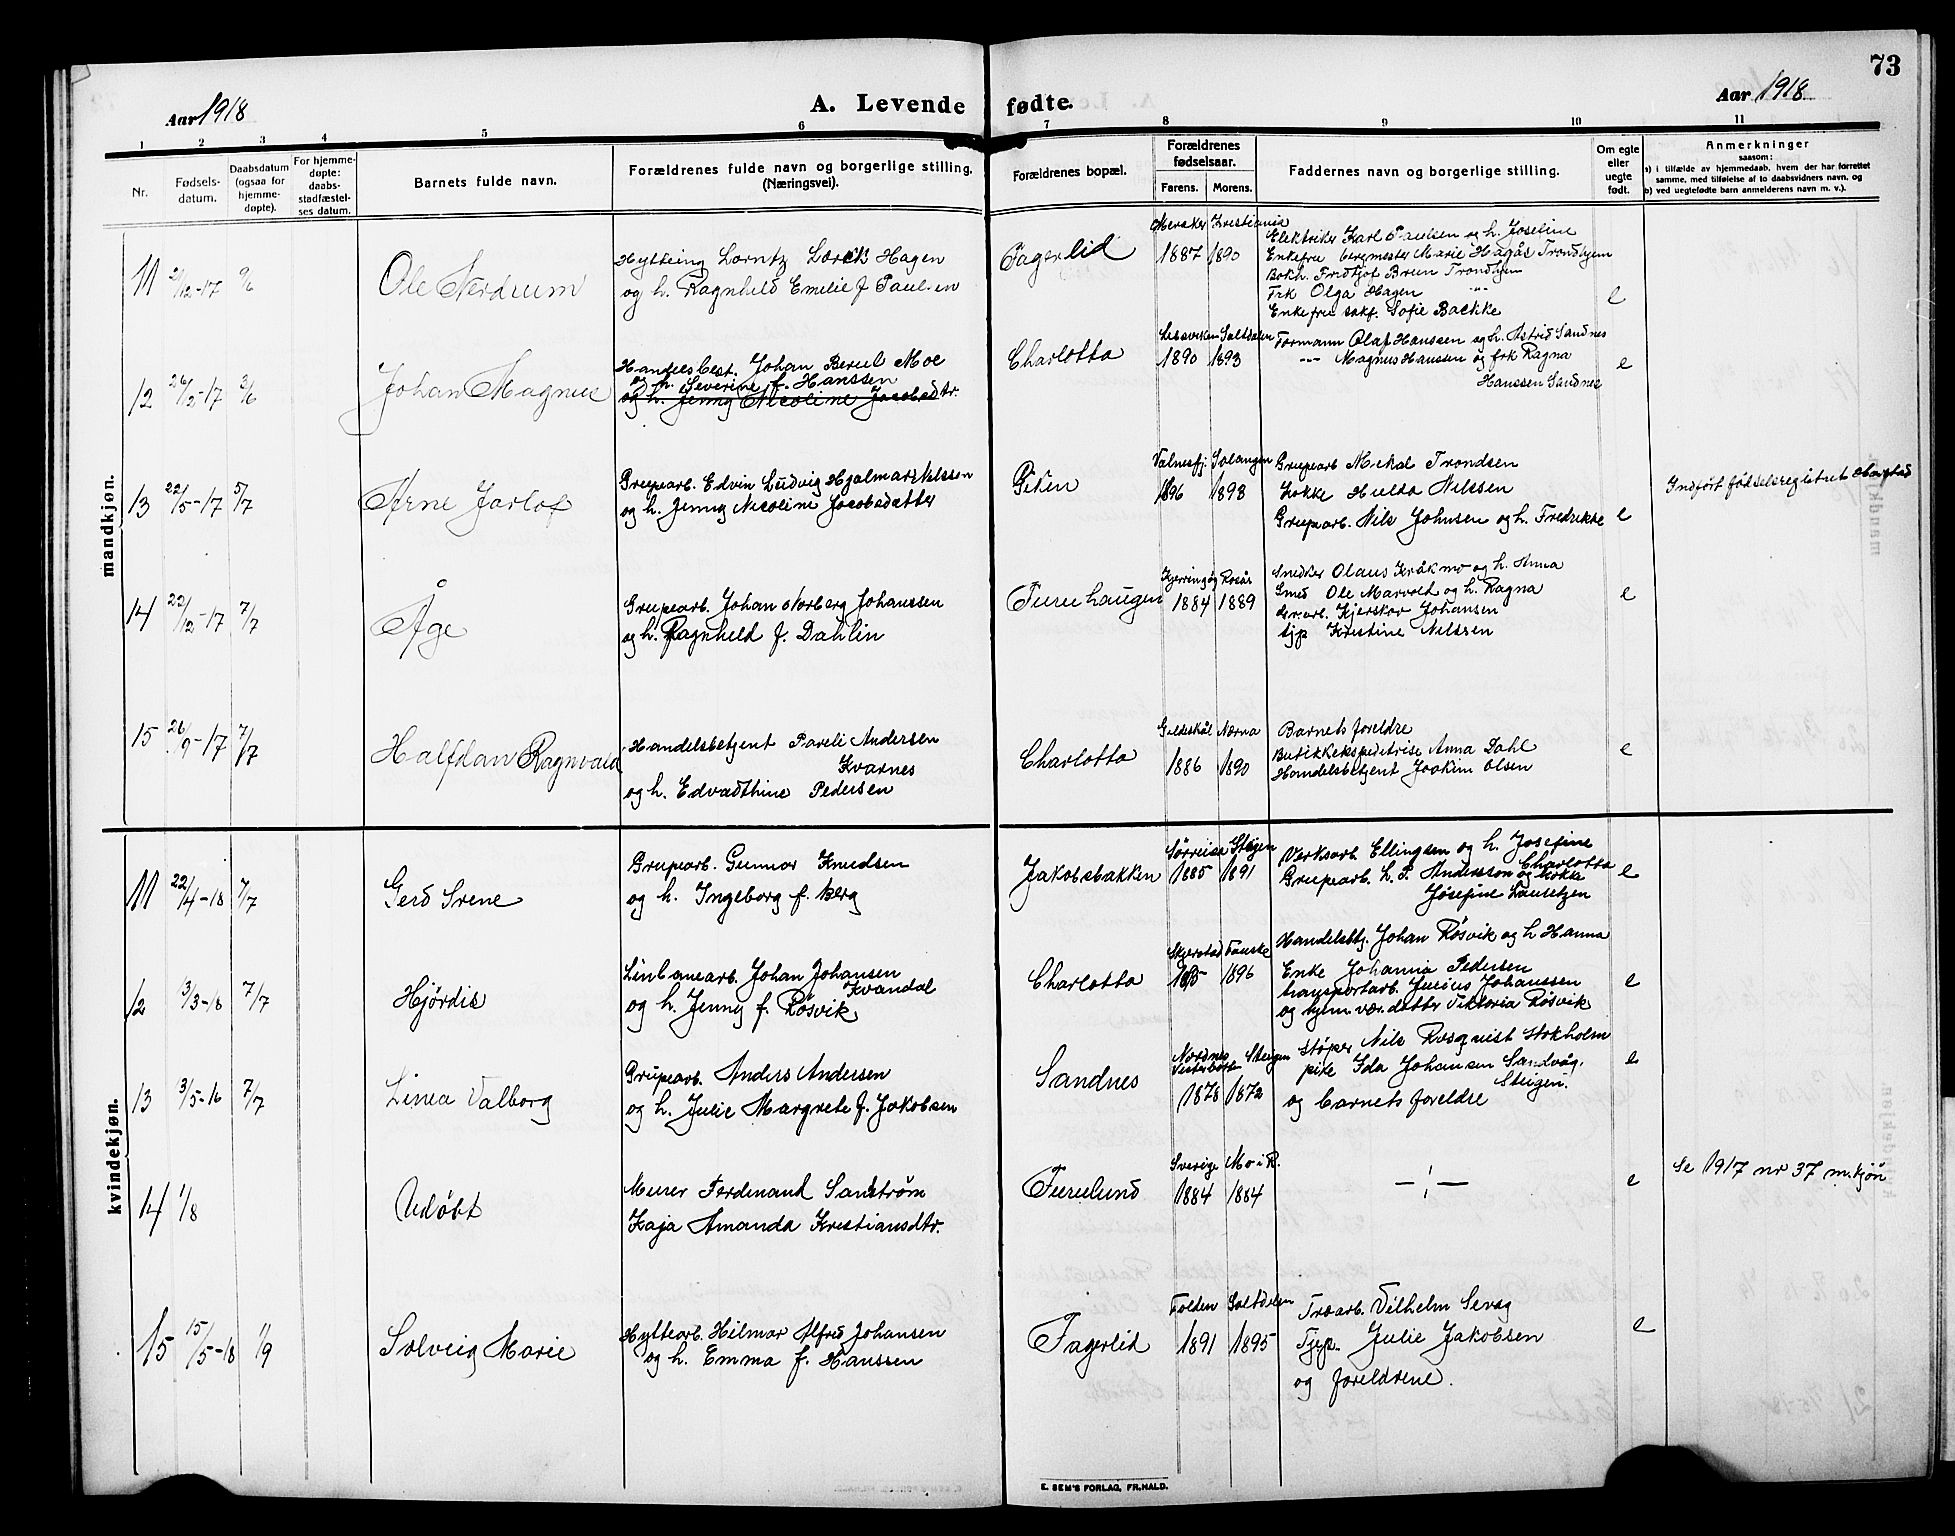 73
Aar 1918
A. Levende fødte.
Aar 1918
1 2 3 4 5 6 7 8 9 10 11
Nr.
Fødsels-
datum.
Daabsdatum
(ogsaa for
hjemme-
døpte).
For hjemme-
døpte:
daabs-
stadfæstel-
ses datum.
Barnets fulde navn.
Forældrenes fulde navn og borgerlige stilling.
(Næringsvei).
Forældrenes bopæl.
Forældrenes
fødselsaar.
Farens. Morens.
Faddernes navn og borgerlige stilling.
Om egte
eller
uegte
født.
Anmerkninger
saasom:
a) i tilfælde av hjemmedaab, hvem der har forrettet
samme, med tilføielse af to daabsvidners navn, og
b) ved uegtefødte barn anmelderens navn m. v.).
mandkjøn.
11 2/12-17 9/6
Ole Nerdrum
Hytteing Lorntz Lorck Hagen
og h. Ragnhild Emelie f. Paulsen
Fagerlid
Meraker Kristiania
1887 1890
Elektriker Karl Paulsen og h. Josefine
Enkefru bergmester Marie Hagås Trondhjem
Bokh. Fridtjof Bruun Trondhjem
Frk Olga Hagen "
Enkefru sakf. Sofie Bakke
e
12 26/2-17 3/6
Johan Magnus
Handelsbest. Johan Berul Moe
og h. Severine f. Hanssen
og h. Jenny Nicoline Jacobsdtr.
Charlotta
Saltdalen
1890 1893
Formann Olaf Hanssen og h. Astrid Sandnes
" Magnus Hanssen og frk Ragna
Hanssen Sandnes
e
13 22/5-17 5/7
Arne Jarlof
Grupearb. Edvin Ludvig Hjalmar Nilssen
og h. Jenny Nicoline Jacobsdatter
Giken
Valnesfj. Salangen
1896 1898
Grupearb Mekal Trondsen
Kokke Hulda Nilssen
Grupearb. Nils Johnsen og h. Fredrikke
e
Indført fødselsregistret
14 22/12-17 7/7
Åge
Grupearb. Johan Norberg Johanssen
og h. Ragnhild f. Dahlin
Furuhaugen
Kjerringøy
1884 1889
Snedker Olaus Kråkmo og h. Anna
Smed Ole Marvold og h. Ragna
Kjerskov Johansen
tjp Kristine Nilssen
e
15 26/9-17 7/7
Halfdan Ragnvald
Handelsbetjent Pareli Andersen
Kvarnes
og h. Edvardthine Pedersen
Charlotta
Gildeskål Nærna
1886 1890
Barnets foreldre
Butikkekspeditrise Anna Dahl
Handelsbetjent Joakim Olsen
e
kvindekjøn.
11 22/4-18 7/7
Gerd Irene
Grupearb. Gunnar Knudsen
og h. Ingeborg f. Berg
Jakobsbakken
Sørreisa Steigen
1885 1891
Verksarb. Ellingsen og h. Josefine
Charlotta
Grupearb. L. P. Andersson og kokke
Josefine Lauritzen
e
12 3/3-18 7/7
Hjørdis
Linbanearb. Johan Johansen
Kvandal
og h. Jenny f. Røsvik
Charlotta
Skjerstad Fauske
1896
Handelsbtj. Johan Røsvik og h Hanna
Enke Johanna Pedersen
transportarb. Julius Johanssen
og hjem. vær. datter Viktoria Røsvik
e
13 3/5-16 7/7
Linea Valborg
Grupearb. Anders Andersen
og h. Julie Margrete f. Jakobsen
Sandnes
Nordnes Steigen
Vesterbott
1878 1872
støper Nils Rosqvist Stokholm
pike Ida Johansen Sandvåg,
Steigen.
og barnets foreldre
e
14 1/8
Udøbt
Murer Ferdinand Sandstrøm
Kaja Amanda Kristiansdtr.
Furulund
Sverige Mo i R.
1884 1884
—¦—
e
Se 1917 nr 37 m.kjøn
15 15/5-18 1/9
Solveig Marie
Hyttearb. Hilmar Alfred Johansen
og h. Emma f. Hanssen
Fagerlid
Folden Saltdalen
1891 1895
Traarb. Vilhelm Sevag
Tjp. Julie Jakobsen
og foreldrene.
e
E. SEM'S FORLAG, FR.HALD.